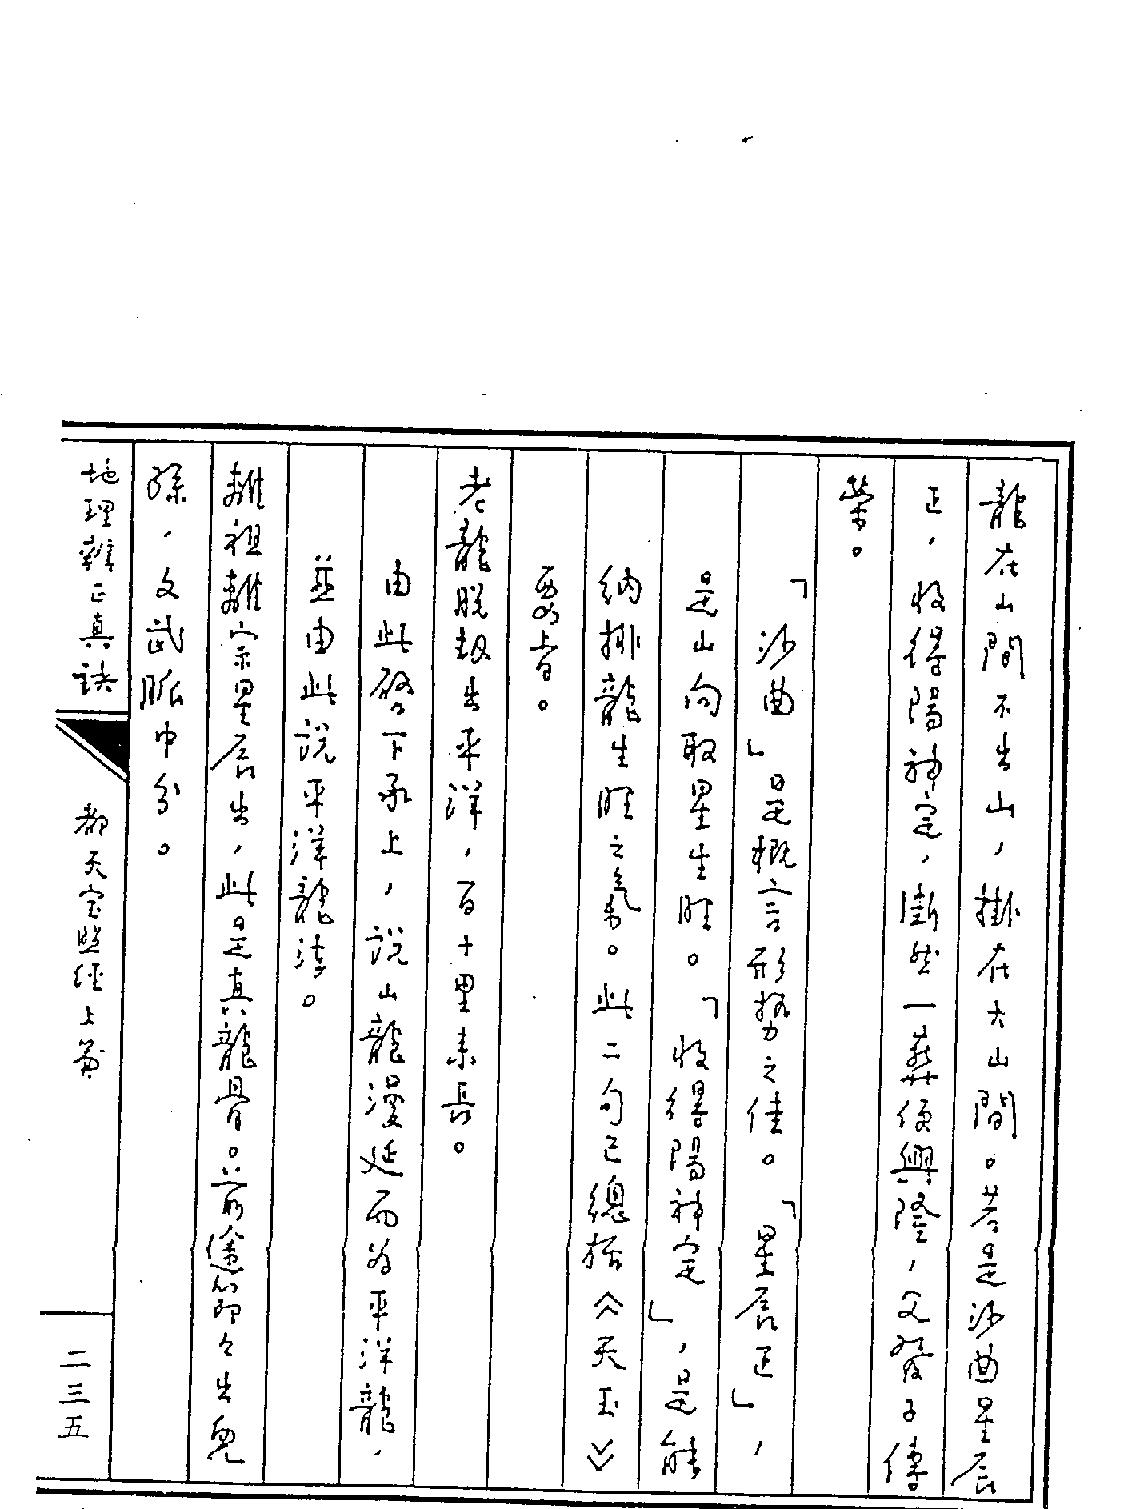 龍在山間不出山，掛在大山間。若是沙曲星辰
正，收得陽神定，斷然一葬便興隆，父發子傳
榮。
「沙曲」是概言形勢之佳。「星辰正」，
是山向取星生旺。「收得陽神定」，是能
納排龍生旺之氣。此二句已總括《天玉》
要旨。
老龍脫劫出平洋，百十里來長。
由此啓下承上，說山龍漫延而為平洋龍，
並由此說平洋龍法。
離祖離宗星辰出，此是真龍骨。前途節々出兒
孫，文武脈中分。
地理辨正真訣
都天寶照經上篇
二三五